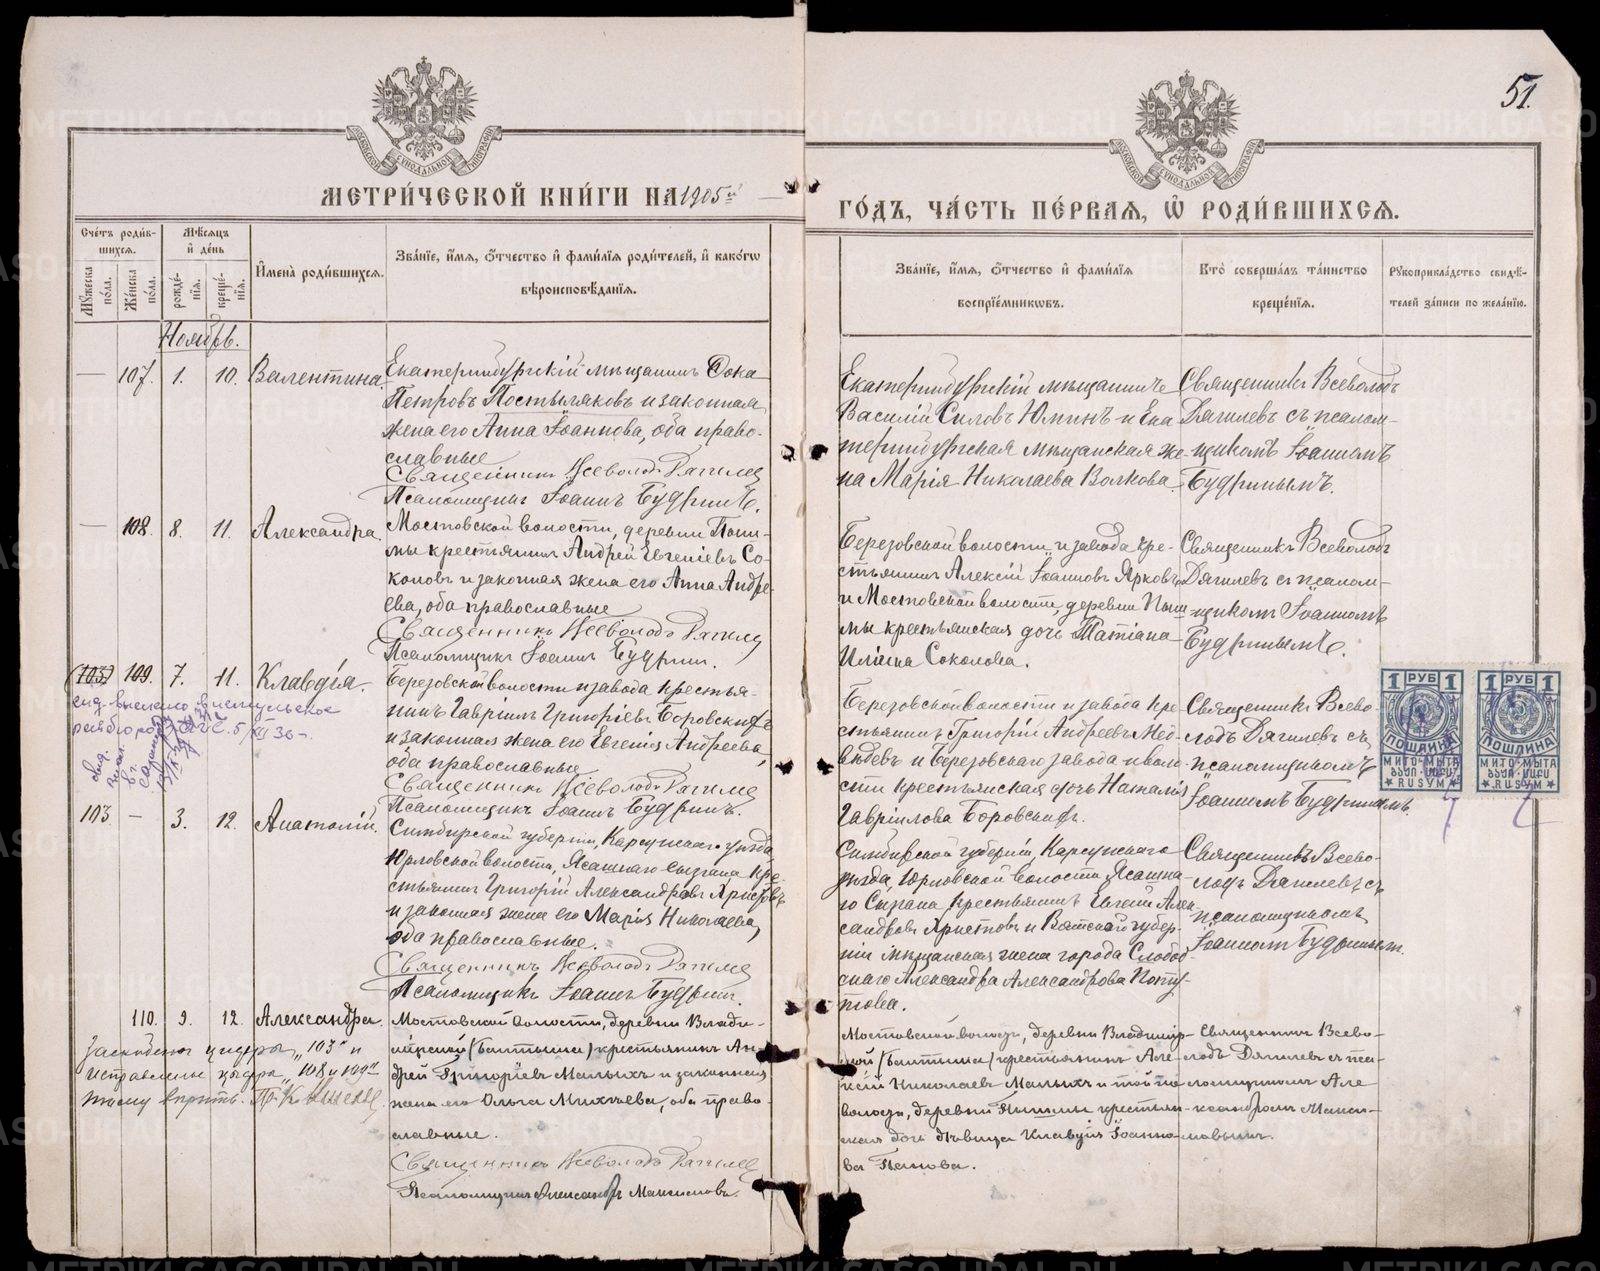 51.
МЕТРИЧЕСКОЙ КНИГИ НА 1905й
ГОДЪ, ЧАСТЬ ПЕРВАЯ, Ѡ РОДИВШИХСЯ.
МОСКОВСКОЙ СУНОДАЛЬНОЙ ТИПОГРАФІИ
МОСКОВСКОЙ СУНОДАЛЬНОЙ ТИПОГРАФІИ
Счетъ родившихся.
Мужеска пола.
Женска пола.
Мѣсяцъ и день
рожденія.
крещенія.
Имена родившихся.
Званіе, имя, отчество и фамилія родителей, и какогѡ
вѣроисповѣданія.
Званіе, имя, отчество и фамилія
воспріемникѡвъ.
Кто совершалъ таинство
крещенія.
Рукоприкладство свидѣ-
телей записи по желанію.
Ноябрь.
— 107. 1. 10. Валентина.
Екатеринбургскій мѣщанинъ Фока
Петровъ Постыляковъ и законная
жена его Анна Іоаннова, оба право-
славные
Священникъ Всеволодъ Дягилевъ
Псаломщикъ Іоаннъ Будринъ.
Екатеринбургскій мѣщанинъ
Василій Силовъ Юминъ и Ека
теринбургская мѣщанская же-
на Марія Николаева Волкова.
Священникъ Всеволодъ
Дягилевъ съ псалом-
щикомъ Іоанномъ
Будринымъ.
— 108. 8. 11. Александра.
Мостовской волости, деревни Пыш-
мы крестьянинъ Андрей Евгеніевъ Со-
коловъ и законная жена его Анна Андре-
ева, оба православные
Священникъ Всеволодъ Дягилевъ
Псаломщикъ Іоаннъ Будринъ.
Березовской волости и завода кре-
стьянинъ Алексій Іоанновъ Ярковъ
и Мостовской волости, деревни Пыш-
мы крестьянская дочь Татіана
Иліина Соколова.
Священникъ Всеволодъ
Дягилевъ съ псалом-
щикомъ Іоанномъ
Будринымъ.
(103) 109. 7. 11. Клавдія.
Березовской волости и завода крестья-
нинъ Гавріилъ Григоріевъ Боровскихъ
и законная жена его Евгенія Андреева,
оба православные
Священникъ Всеволодъ Дягилевъ
Псаломщикъ Іоаннъ Будринъ.
Березовской волости и завода кре-
стьянинъ Григорій Андреевъ Мед-
вѣдевъ и Березовскаго завода и воло-
сти крестьянская дочь Наталія
Гавріилова Боровскихъ.
Священникъ Всево-
лодъ Дягилевъ съ
псаломщикомъ
Іоанномъ Будринымъ.
1 РУБ 1
ПОШЛИНА
МИТО·МЫТА
RUSYM
1 РУБ 1
ПОШЛИНА
МИТО·МЫТА
RUSYM
103 — 3. 12. Анатолій.
Симбирской губерніи, Карсунскаго уѣзда,
Юрловской волости, Ясашнаго Сызгана кре-
стьянинъ Григорій Александровъ Аристовъ
и законная жена его Марія Николаева,
оба православные.
Священникъ Всеволодъ Дягилевъ
Псаломщикъ Іоаннъ Будринъ.
Симбирской губерніи, Карсунскаго
уѣзда, Юрловской волости, Ясашна-
го Сызгана крестьянинъ Евгеній Алек
сандровъ Аристовъ и Вятской губер-
ніи мѣщанская жена города Слобод-
скаго Александра Александрова
Священникъ Всево-
лодъ Дягилевъ съ
псаломщикомъ
Іоанномъ Будринымъ.
110. 9. 12. Александра.
Мостовской волости, деревни Влади-
мірской крестьянинъ Ан-
дрей Григоріевъ Малыхъ и законная
жена его Ольга Михѣева, оба право-
славные.
Священникъ Всеволодъ Дягилевъ
Псаломщикъ Александръ Максимовъ.
Мостовской волости, деревни Владимір-
ской крестьянинъ Але-
ксій Николаевъ Малыхъ и той же
волости, деревни Пышмы крестьян-
ская дочь дѣвица Клавдія Іоанно-
ва Панова.
Священникъ Всево-
лодъ Дягилевъ съ пса-
ломщикомъ Але
ксандромъ Макси-
мовымъ.
цыфры „103" и
исправлены цыфры „108 и 109"
тому вѣрить.
METRIKI.GASO-URAL.RU